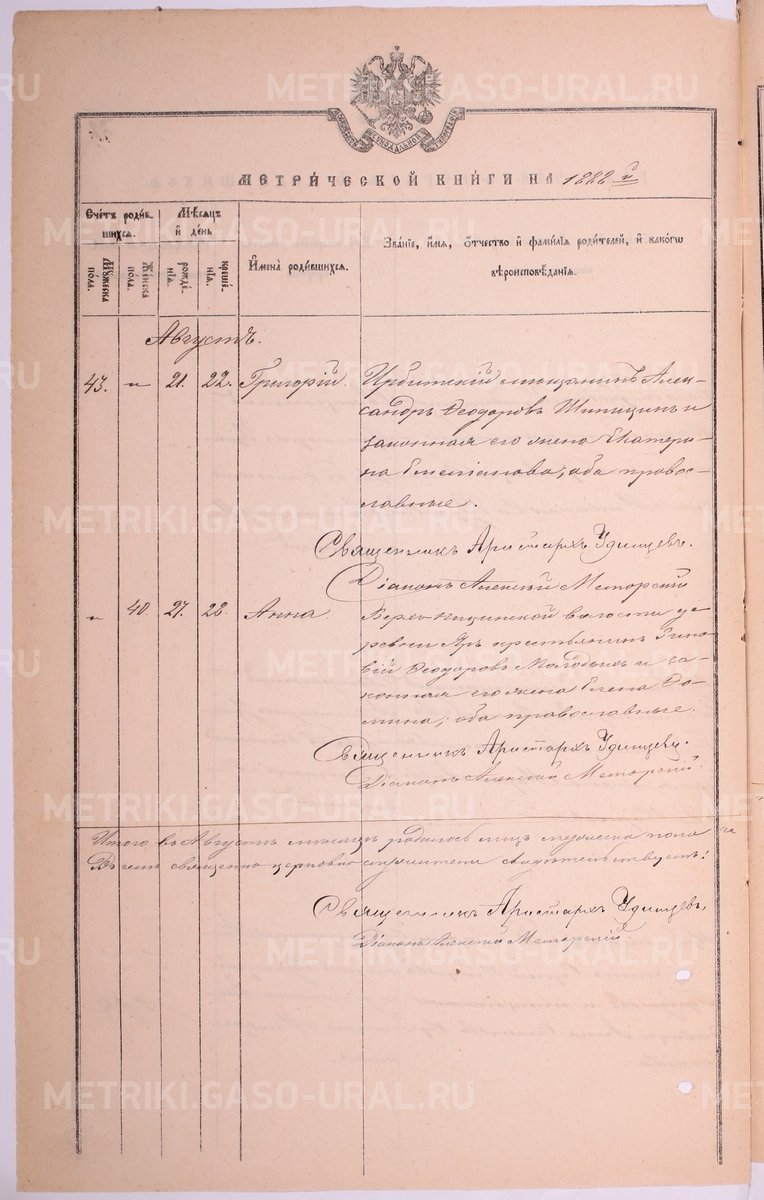 МЕТРИ́ЧЕСКОЙ КНИ́ГИ НА 1888 й
Сче́тъ роди́в-
шихся.
Мѣсяцъ
и́ де́нь
Му́жеска
по́ла.
Же́нска
по́ла.
рожде́-
нія.
креще́-
нія.
И́мена̀ роди́вшихся.
Зва́ніе, и́мя, о́тчество и́ фами́лія роди́телей, и́ како́гѡ
вѣроисповѣ́данія.
Августъ.
43. „ 21. 22. Григорій. Ирбитскій мѣщанинъ Алек-
сандръ Ѳеодоровъ Шипицинъ и
законная его жена Екатери-
на Емельянова, оба право-
славные.
Священникъ Аристархъ Удинцевъ.
Діаконъ Алексій Меторскій
„ 40. 27. 28. Анна. Верхъ-Ницинской волости де-
ревни Яръ крестьянинъ Зино-
вій Ѳеодоровъ Молодыхъ и за-
конная его жена Елена Ѳо-
мина, оба православные.
Священникъ Аристархъ Удинцевъ.
Діаконъ Алексій Меторскій.
Итого въ Августѣ мѣсяцѣ родилось лицъ мужеска пола
Въ чемъ священно-церковно-служители свидѣтельствуютъ:
Священникъ Аристархъ Удинцевъ.
Діаконъ Алексій Меторскій.
METRIKI.GASO-URAL.RU